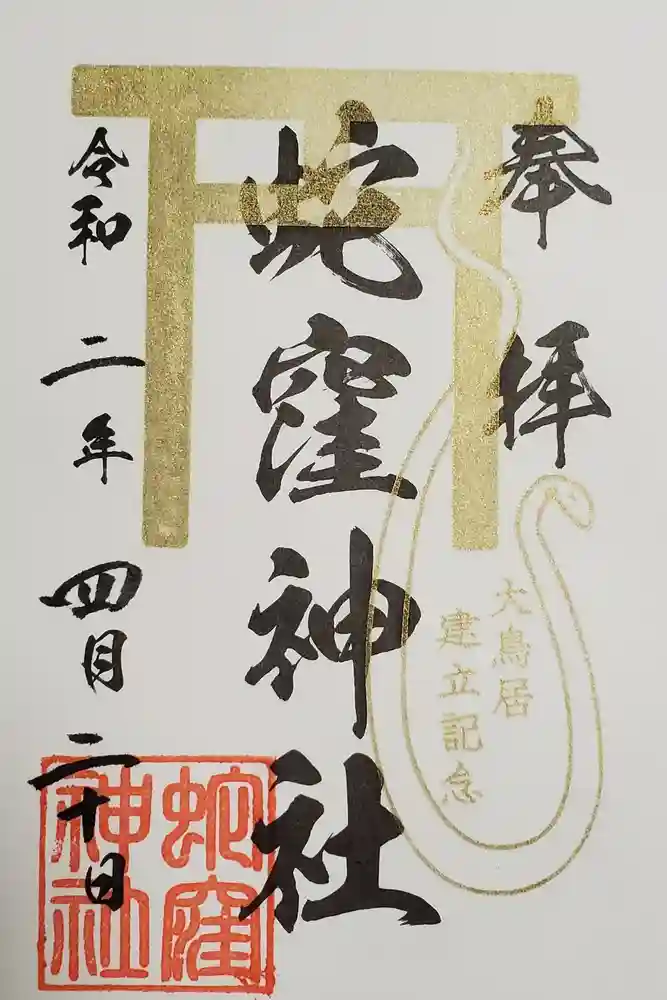 奉拝
大鳥居
建立記念
蛇窪神社
令和二年四月二十日
蛇窪
神社